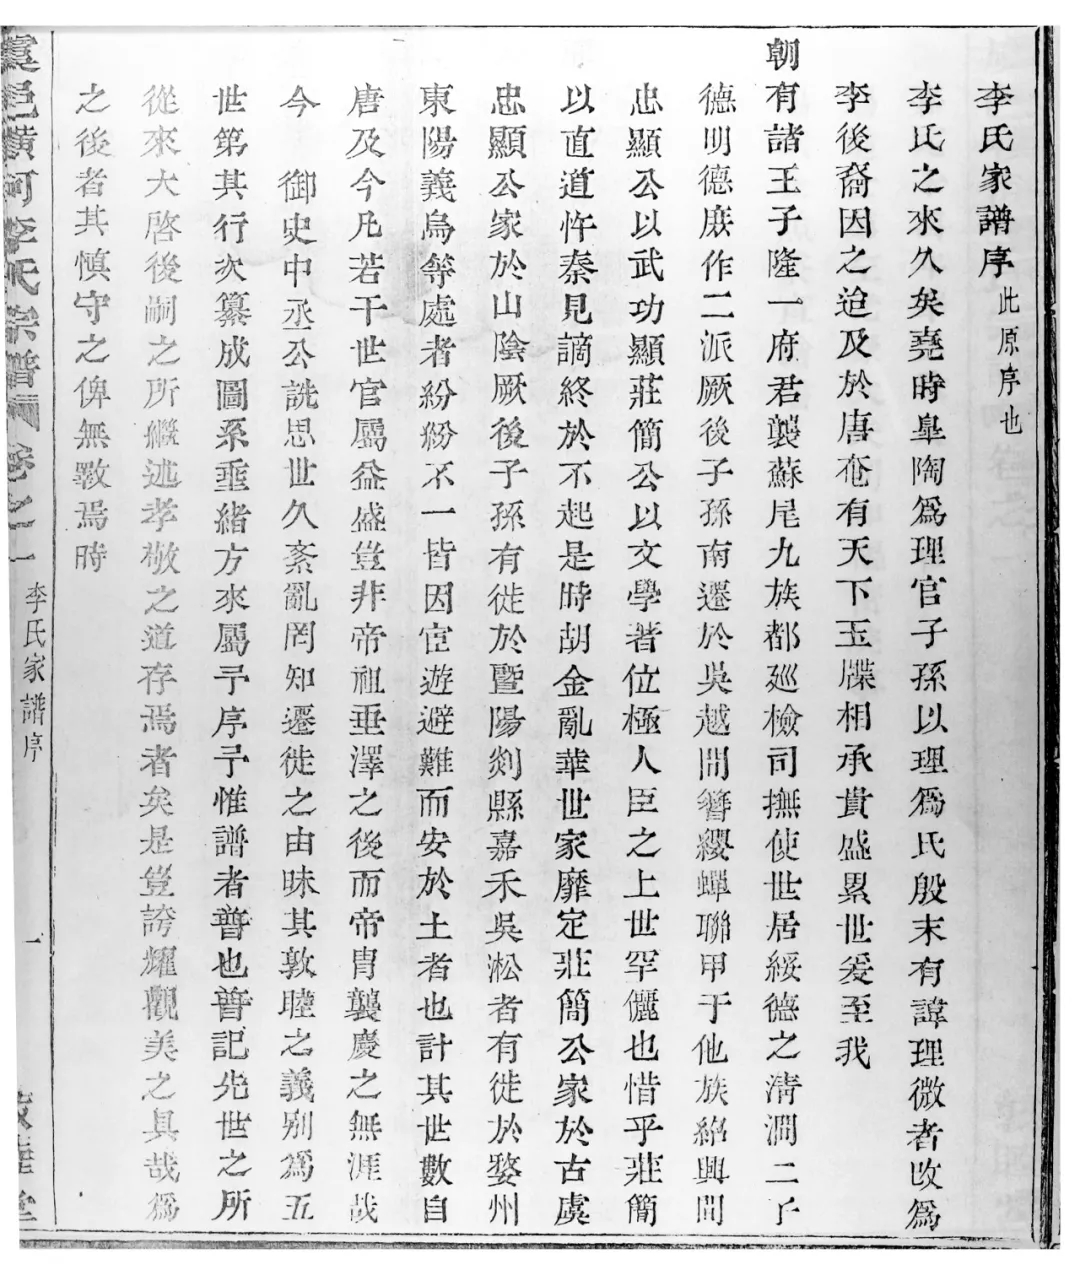 李氏家譜序 此原序也
李氏之來久矣堯時臯陶爲理官子孫以理爲氏殷末有諱理微者改爲
李後裔因之迨及於唐奄有天下玉牒相承貴盛累世爰至我
朝有諸王子隆一府君襲蘇尾九族都廵檢司撫使世居綏德之淸澗二子
德明德庶作二派厥後子孫南遷於吳越間簪纓蟬聯甲于他族紹興間
忠顯公以武功顯莊簡公以文學著位極人臣之上世罕儷也惜乎莊簡
以直道忤秦見謫終於不起是時胡金亂華世家靡定莊簡公家於古虞
忠顯公家於山陰厥後子孫有徙於暨陽剡縣嘉禾吳淞者有徙於婺州
東陽義烏等處者紛紛不一皆因宦遊避難而安於土者也計其世數自
唐及今凡若干世官屬益盛豈非帝祖垂澤之後而帝胄襲慶之無涯哉
今 御史中丞公詵思世久紊亂罔知遷徙之由昧其敦睦之義別爲五
世第其行次纂成圖系垂緒方來屬予序予惟譜者普也普記先世之所
從來大啓後嗣之所繼述孝敬之道存焉者矣是豈誇耀觀美之具哉爲
之後者其慎守之俾無斁焉時
虞邑橫河李氏宗譜 卷之一 李氏家譜序 一